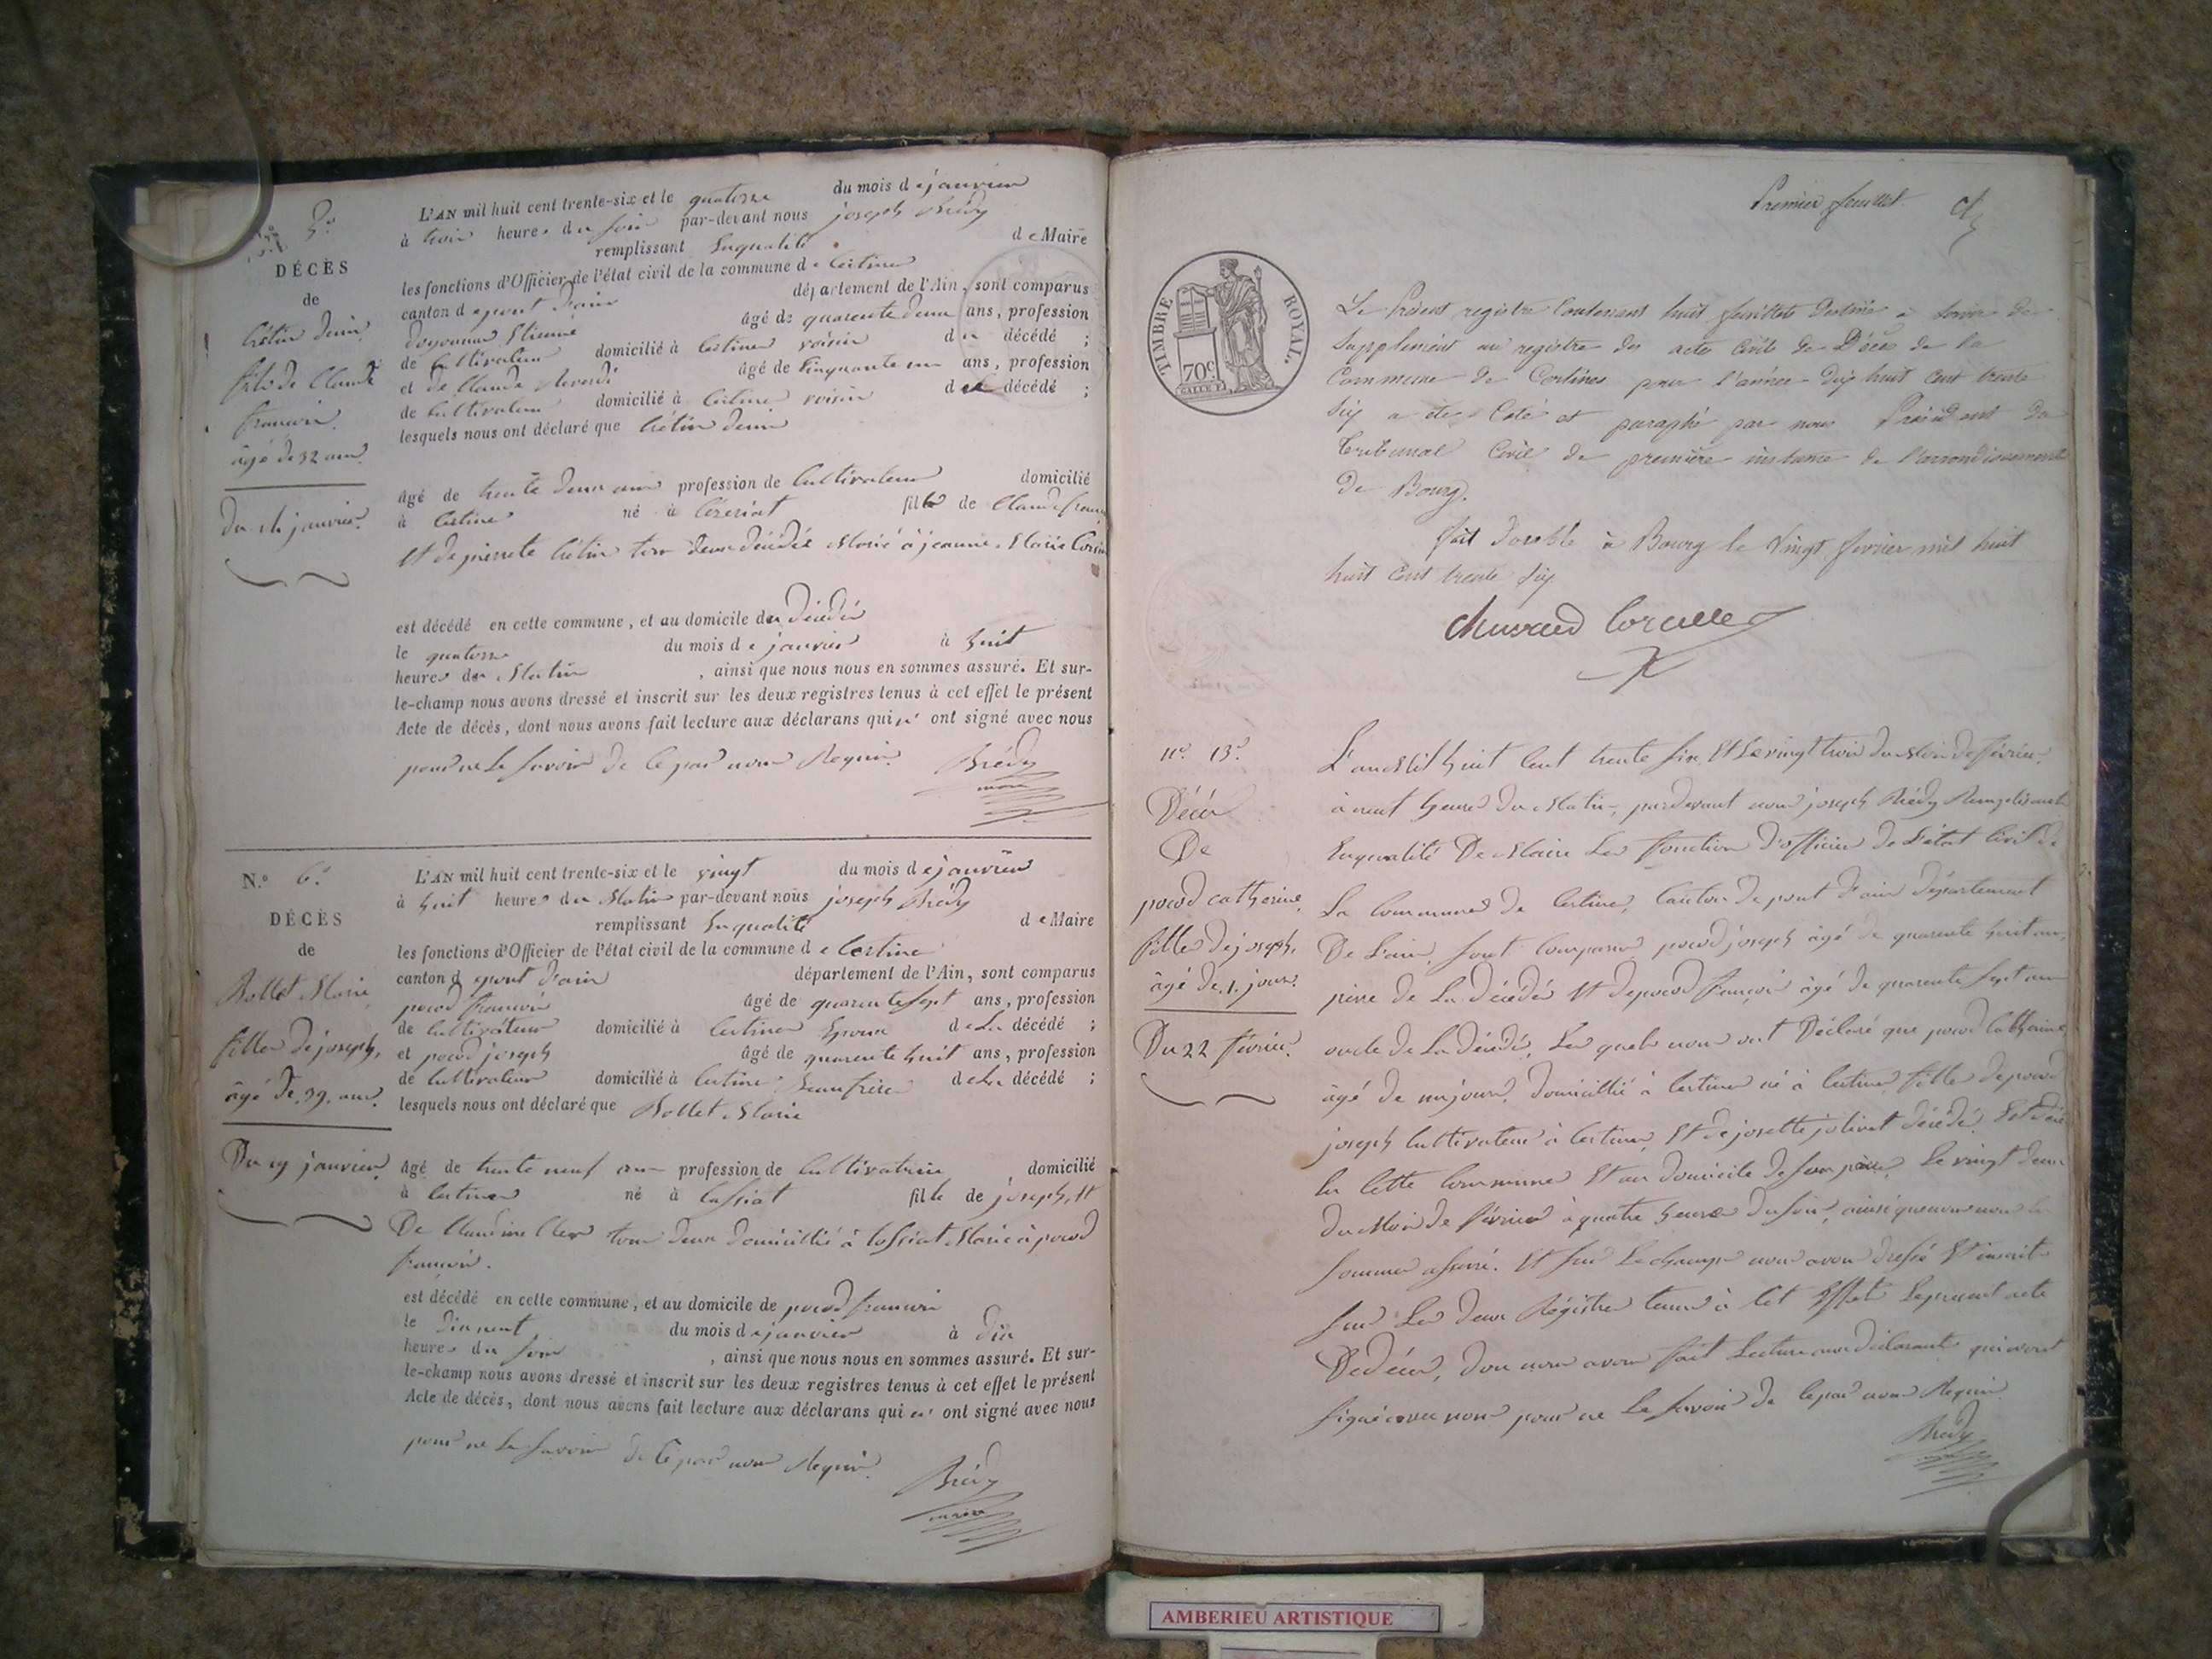 5.e
DÉCÈS
de
fils de Claude
françois
âgé de 32 ans
Du 14 janvier.
L'AN mil huit cent trente-six et le quatorze du mois de janvier
à trois heures du soir par-devant nous joseph Brédy
remplissant Enqualité de Maire
les fonctions d'Officier de l'état civil de la commune de Certines
canton de pont d'ain département de l'Ain, sont comparus
Etienne âgé de quarente deux ans, profession
de Cultivateur domicilié à Certines voisin du décédé ;
et de Claude âgé de Cinquante un ans, profession
de Cultivateur domicilié à Certines voisin du décédé ;
lesquels nous ont déclaré que
âgé de trente deux ans profession de Cultivateur domicilié
à Certines né à Ceyzeriat fils de Claude françois
Et de pierrette tous deux décédés Marié à jeanne Marie
est décédé en cette commune, et au domicile du décédé
le quatorze du mois de janvier à huit
heures du Matin, ainsi que nous nous en sommes assuré. Et sur-
le-champ nous avons dressé et inscrit sur les deux registres tenus à cet effet le présent
Acte de décès, dont nous avons fait lecture aux déclarans qui n' ont signé avec nous
pour ne Le savoir de Ce par nous Requis. Brédy
maire
N.º 6.e
DÉCÈS
de
Bollet Marie
fille de joseph,
âgé de 39. ans.
Du 19 janvier
L'AN mil huit cent trente-six et le vingt du mois de janvier
à huit heures du Matin par-devant nous joseph Brédy
remplissant Enqualité de Maire
les fonctions d'Officier de l'état civil de la commune de Certines
canton de pont d'ain département de l'Ain, sont comparus
pocod françois âgé de quarente sept ans, profession
de Cultivateur domicilié à Certines Epoux de La décédé ;
et pocod joseph âgé de quarente huit ans, profession
de Cultivateur domicilié à Certines Beaufrère de La décédé ;
lesquels nous ont déclaré que Bollet Marie
âgé de trente neuf ans profession de Cultivatrice domicilié
à Certines né à Lassiat fille de joseph, Et
De Claudine Clerc tous deux domicillié à Lassiat Marié à pocod
françois.
est décédé en cette commune, et au domicile de pocod françois
le Dix neuf du mois de janvier à dix
heures du soir, ainsi que nous nous en sommes assuré. Et sur-
le-champ nous avons dressé et inscrit sur les deux registres tenus à cet effet le présent
Acte de décès, dont nous avons fait lecture aux déclarans qui n' ont signé avec nous
pour ne Le savoir de Ce par nous Requis. Brédy
maire
Premier feuillet
TIMBRE ROYAL.
70c
Le Présent registre Contenant huit feuillets destiné à servir de
Supplément au registre des actes Civils de Décès de la
Commune de Certines pour l'année dix huit cent trente
Six a été Coté et paraphé par nous Président du
Tribunal Civil de première instance de l'arrondissement
de Bourg.
fait double à Bourg le Vingt février mil huit
huit cent trente Six
n.º 13.e
Décès
De
pocod catherine
fille de joseph,
âgé de .1. jour.
Du 22 février.
L'an Mil huit Cent trente six Et Le vingt trois du Mois de février
à neuf heures du Matin, pardevant nous joseph Brédy Remplissant
Enqualité De Maire Les fonction d'officier de L'état Civil de
La Commune de Certines, Canton de pont d'ain département
De L'ain, sont Comparus pocod joseph âgé de quarente huit ans,
père de La décédés Et de pocod françois âgé de quarente sept ans
oncle de La décédés, Les quels nous ont Déclaré que pocod Catherine
âgé de un jour, domicillié à Certines né à Certines fille de pocod
joseph Cultivateur à Certines, Et de josette jolivet décédé. Est décédé
En Cette Commune Et au domicile de son père, Le vingt deux
du Mois de février à quatre heures du soir, ainsi que nous nous En
sommes assuré. Et sur Le champ nous avons dressé Et inscrit
sur Les deux Régistres tenus à Cet Effet Le present acte
De décès, dont nous avons fait Lecture aux déclarants qui n'ont
signé avec nous pour ne Le savoir de Ce par nous Requis
Brédy
maire
AMBERIEU ARTISTIQUE